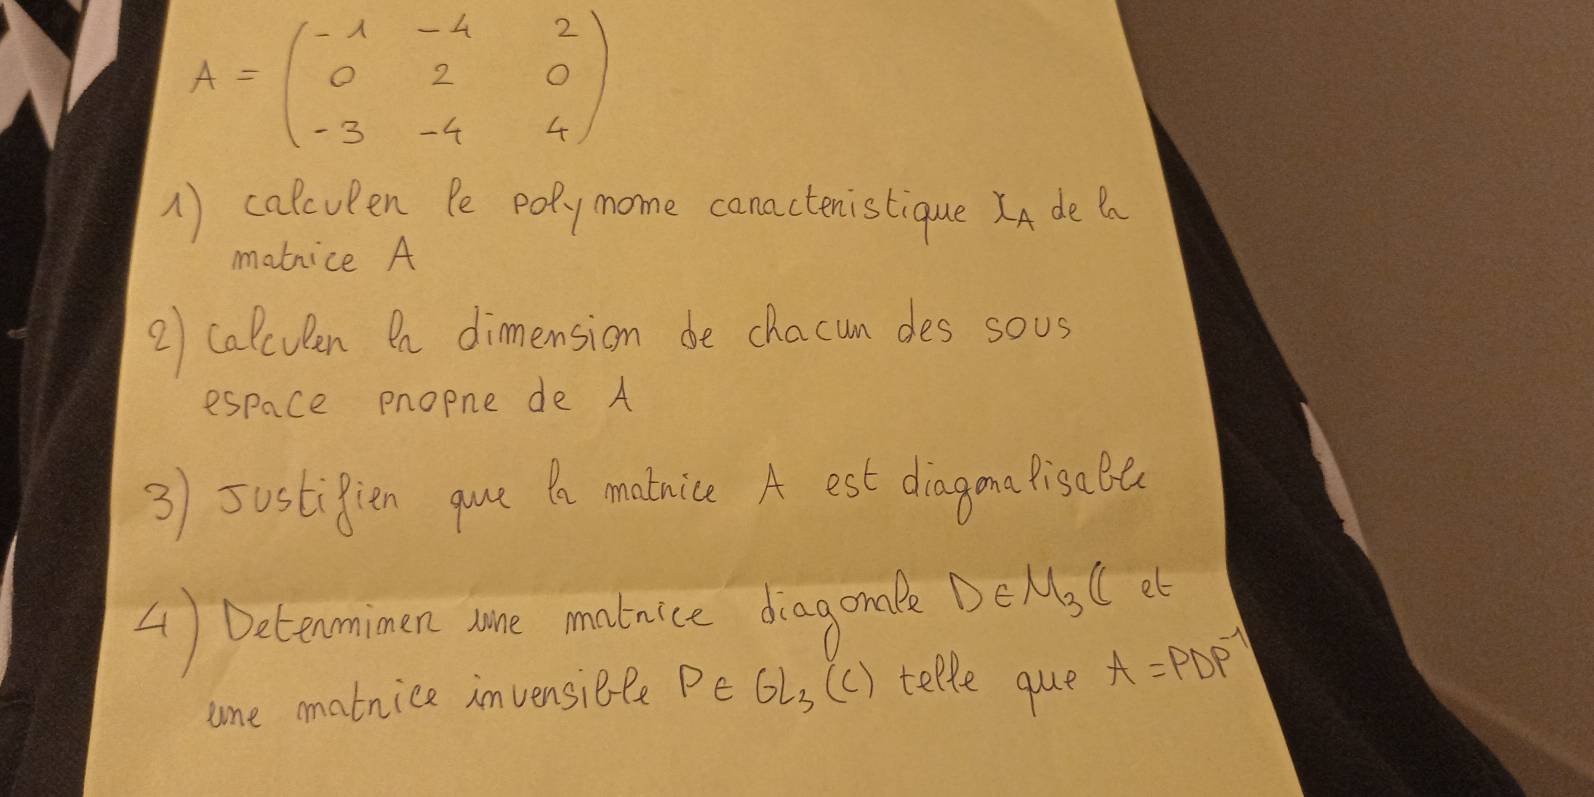 A = ( -1 -4 2
0 2 0
-3 -4 4 )
1) calculer le polynome caracteristique χA de la
matrice A
2) calculer la dimension de chacun des sous
espace propre de A
3) Justifier que la matrice A est diagonalisable
4) Determiner une matrice diagonale D ∈ M3 ℂ et
une matrice inversible P ∈ GL3(C) telle que A = PDP⁻¹